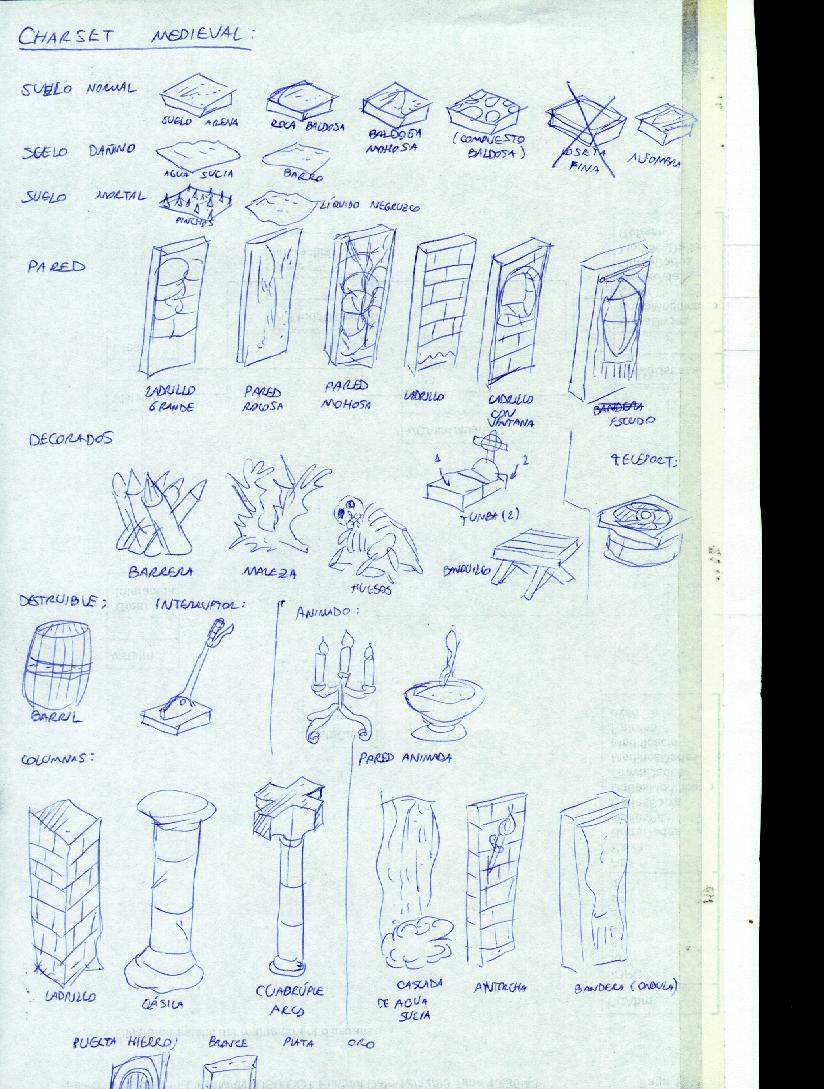 CHARSET MEDIEVAL:
SUELO NORMAL
SUELO ARENA
ROCA BALDOSA
BALDOSA
MOHOSA
(COMPUESTO
BALDOSA)
LOSETA
FINA
ALFOMBRA
SUELO DAÑINO
AGUA SUCIA
BARRO
SUELO MORTAL
PINCHOS
LÍQUIDO NEGRUZCO
PARED
LADRILLO
GRANDE
PARED
ROCOSA
PARED
MOHOSA
LADRILLO
LADRILLO
CON
VENTANA
BANDERA
ESCUDO
DECORADOS
TELEPORT:
1
2
TUMBA (2)
BARRERA
MALEZA
HUESOS
BANQUILLO
DESTRUIBLE:
INTERRUPTOR:
ANIMADO:
BARRIL
COLUMNAS:
PARED ANIMADA
LADRILLO
CLÁSICA
CUADRÚPLE
ARCO
CASCADA
DE AGUA
SUCIA
ANTORCHA
BANDERA (ONDULA)
PUERTA HIERRO; BRONCE PLATA ORO